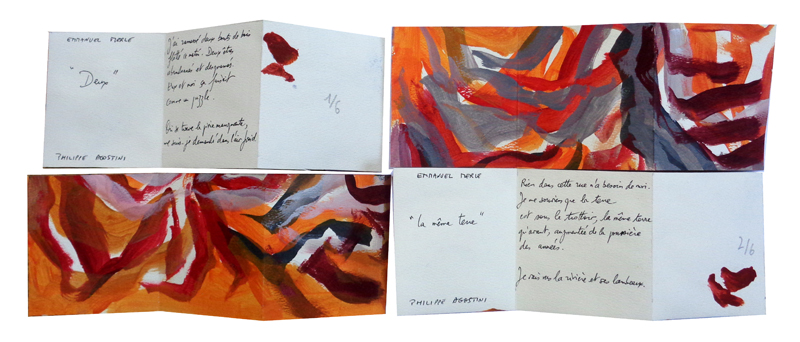 EMMANUEL MERLE
"Deux"
PHILIPPE AGOSTINI
J'ai ramassé deux bouts de bois
flotté
Deux êtres
et
Eux et moi ça faisait
comme un puzzle.
Où se trouve la pièce manquante,
me suis-je demandé dans l'air froid.
1/6
EMMANUEL MERLE
"La même terre"
PHILIPPE AGOSTINI
Rien dans cette rue n'a besoin de moi.
Je me souviens que la terre
est sous le trottoir, la même terre
qu'avant, augmentée de la poussière
des années.
Je vais vers la rivière et ses lambeaux.
2/6